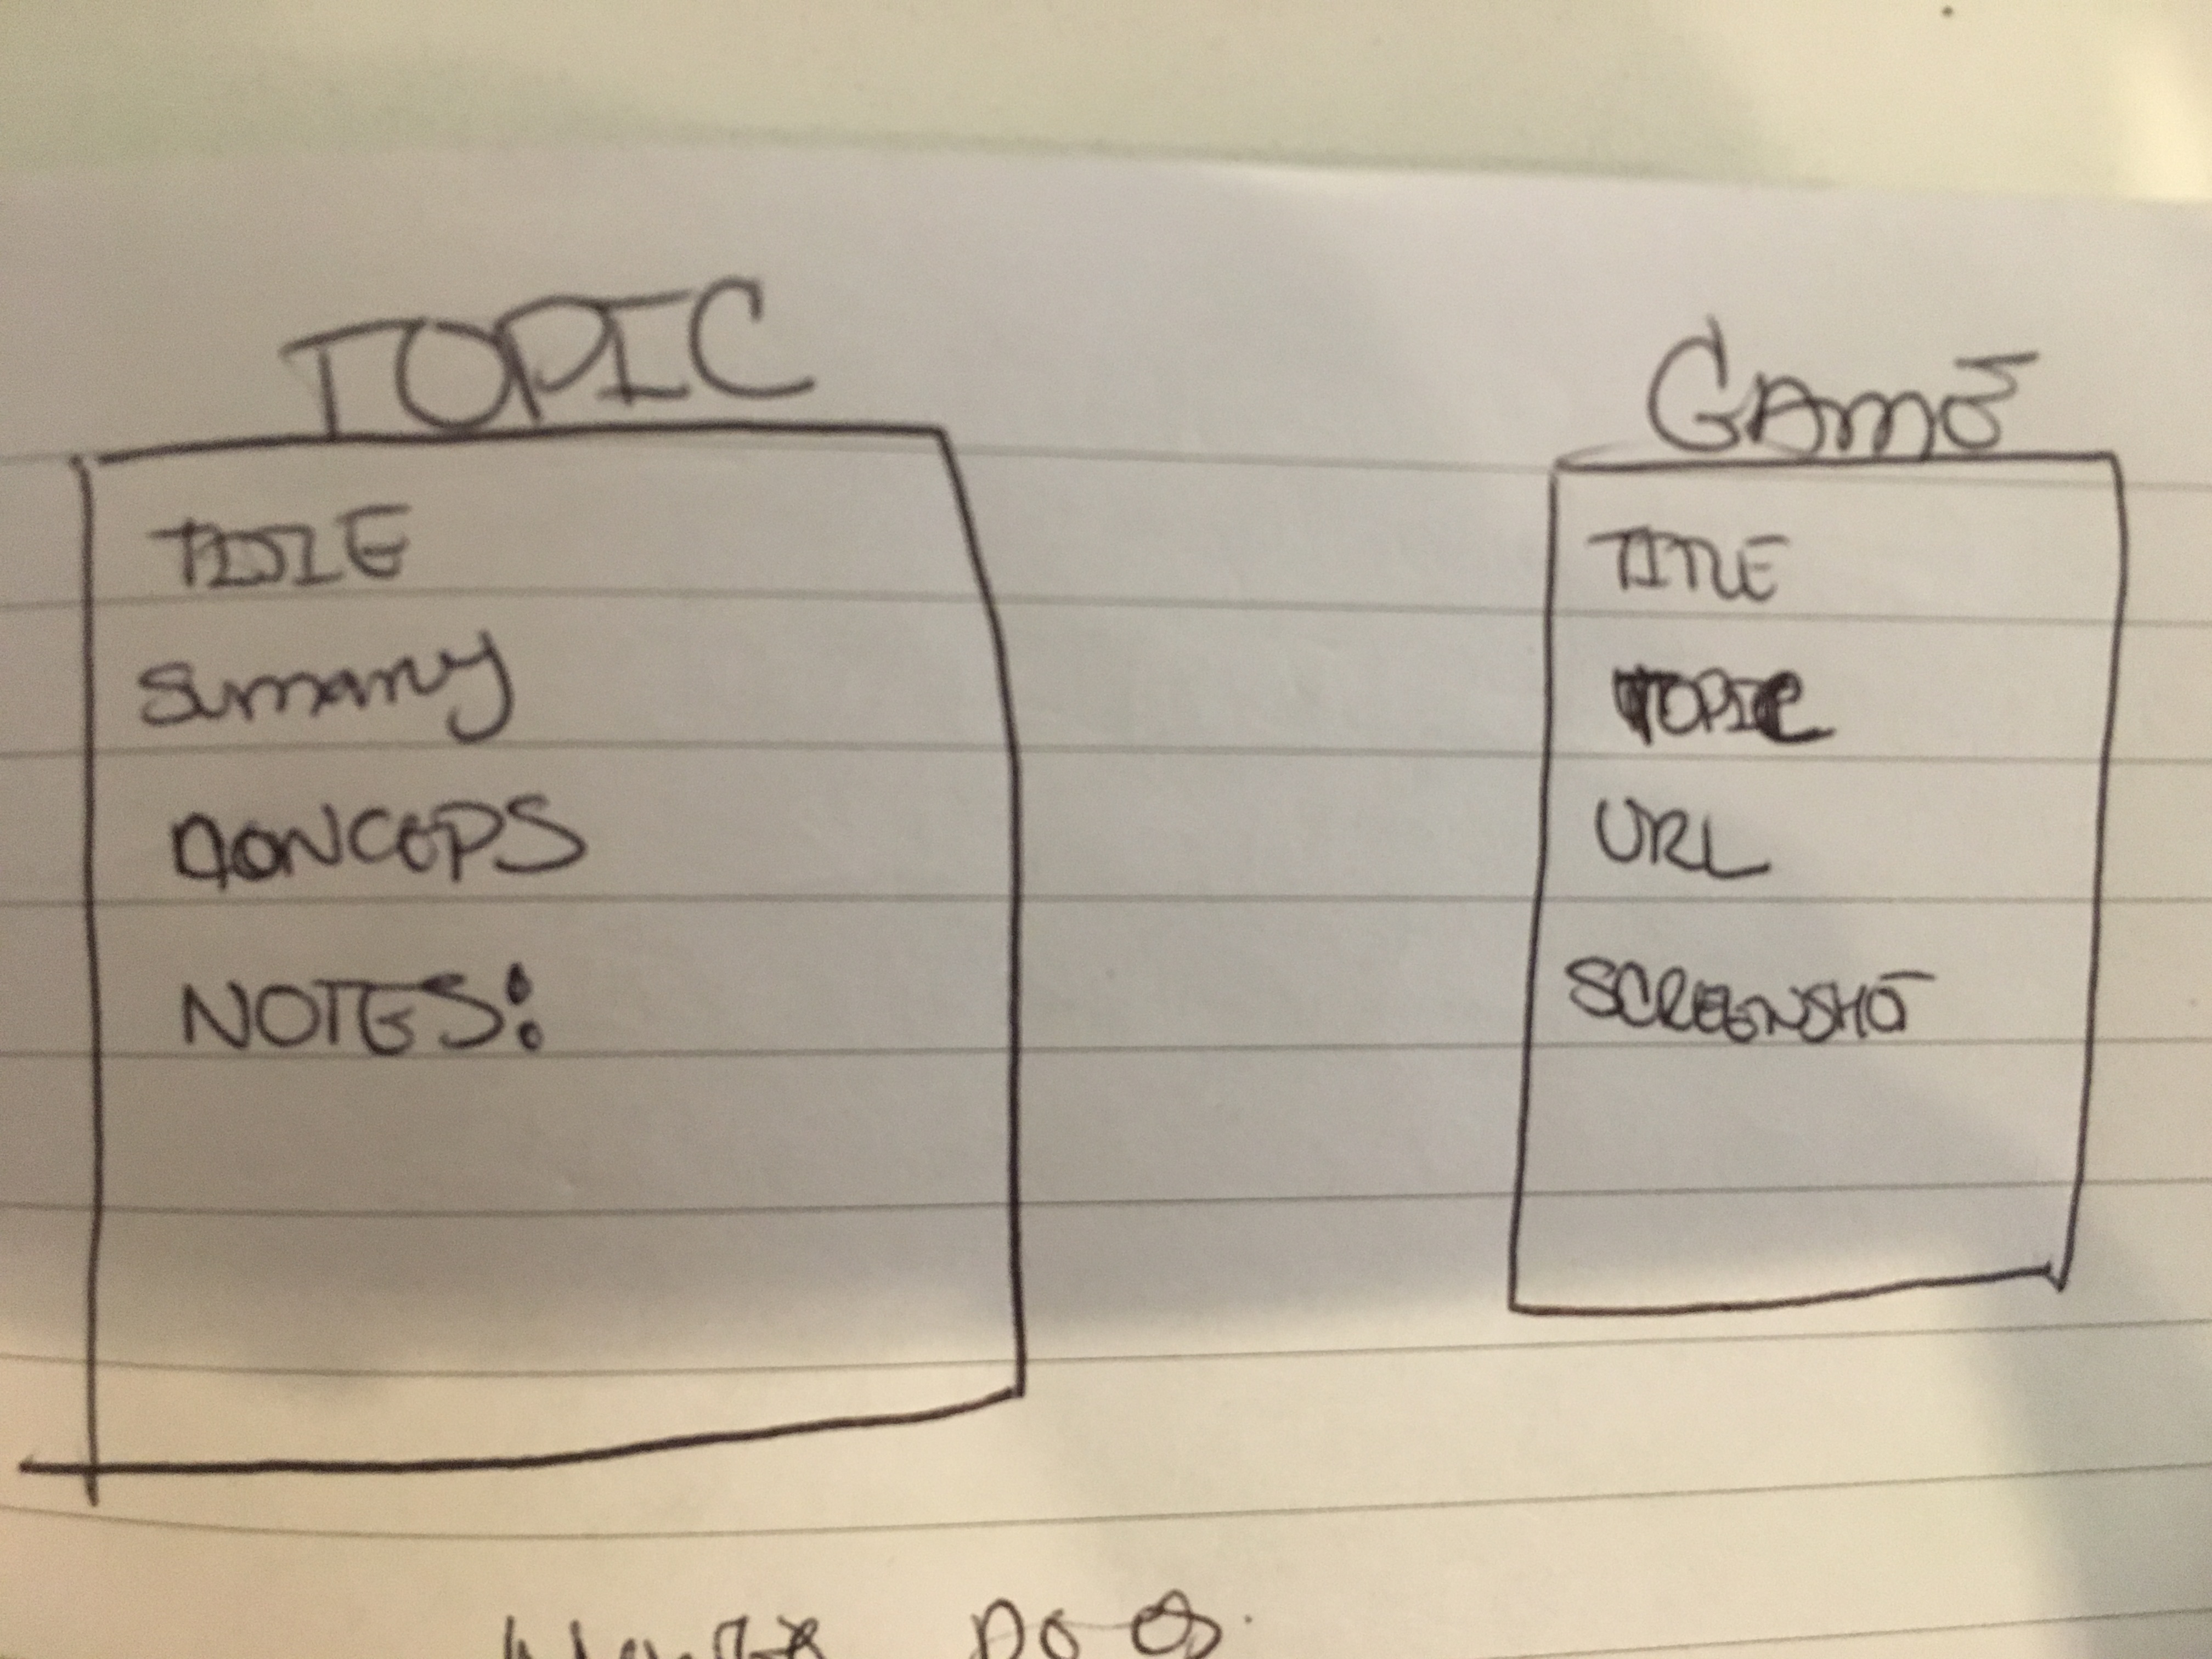 TOPIC
TITLE
Summary
CONCEPS
NOTES:
GAME
TITLE
TOPIC
URL
SCREENSHOT